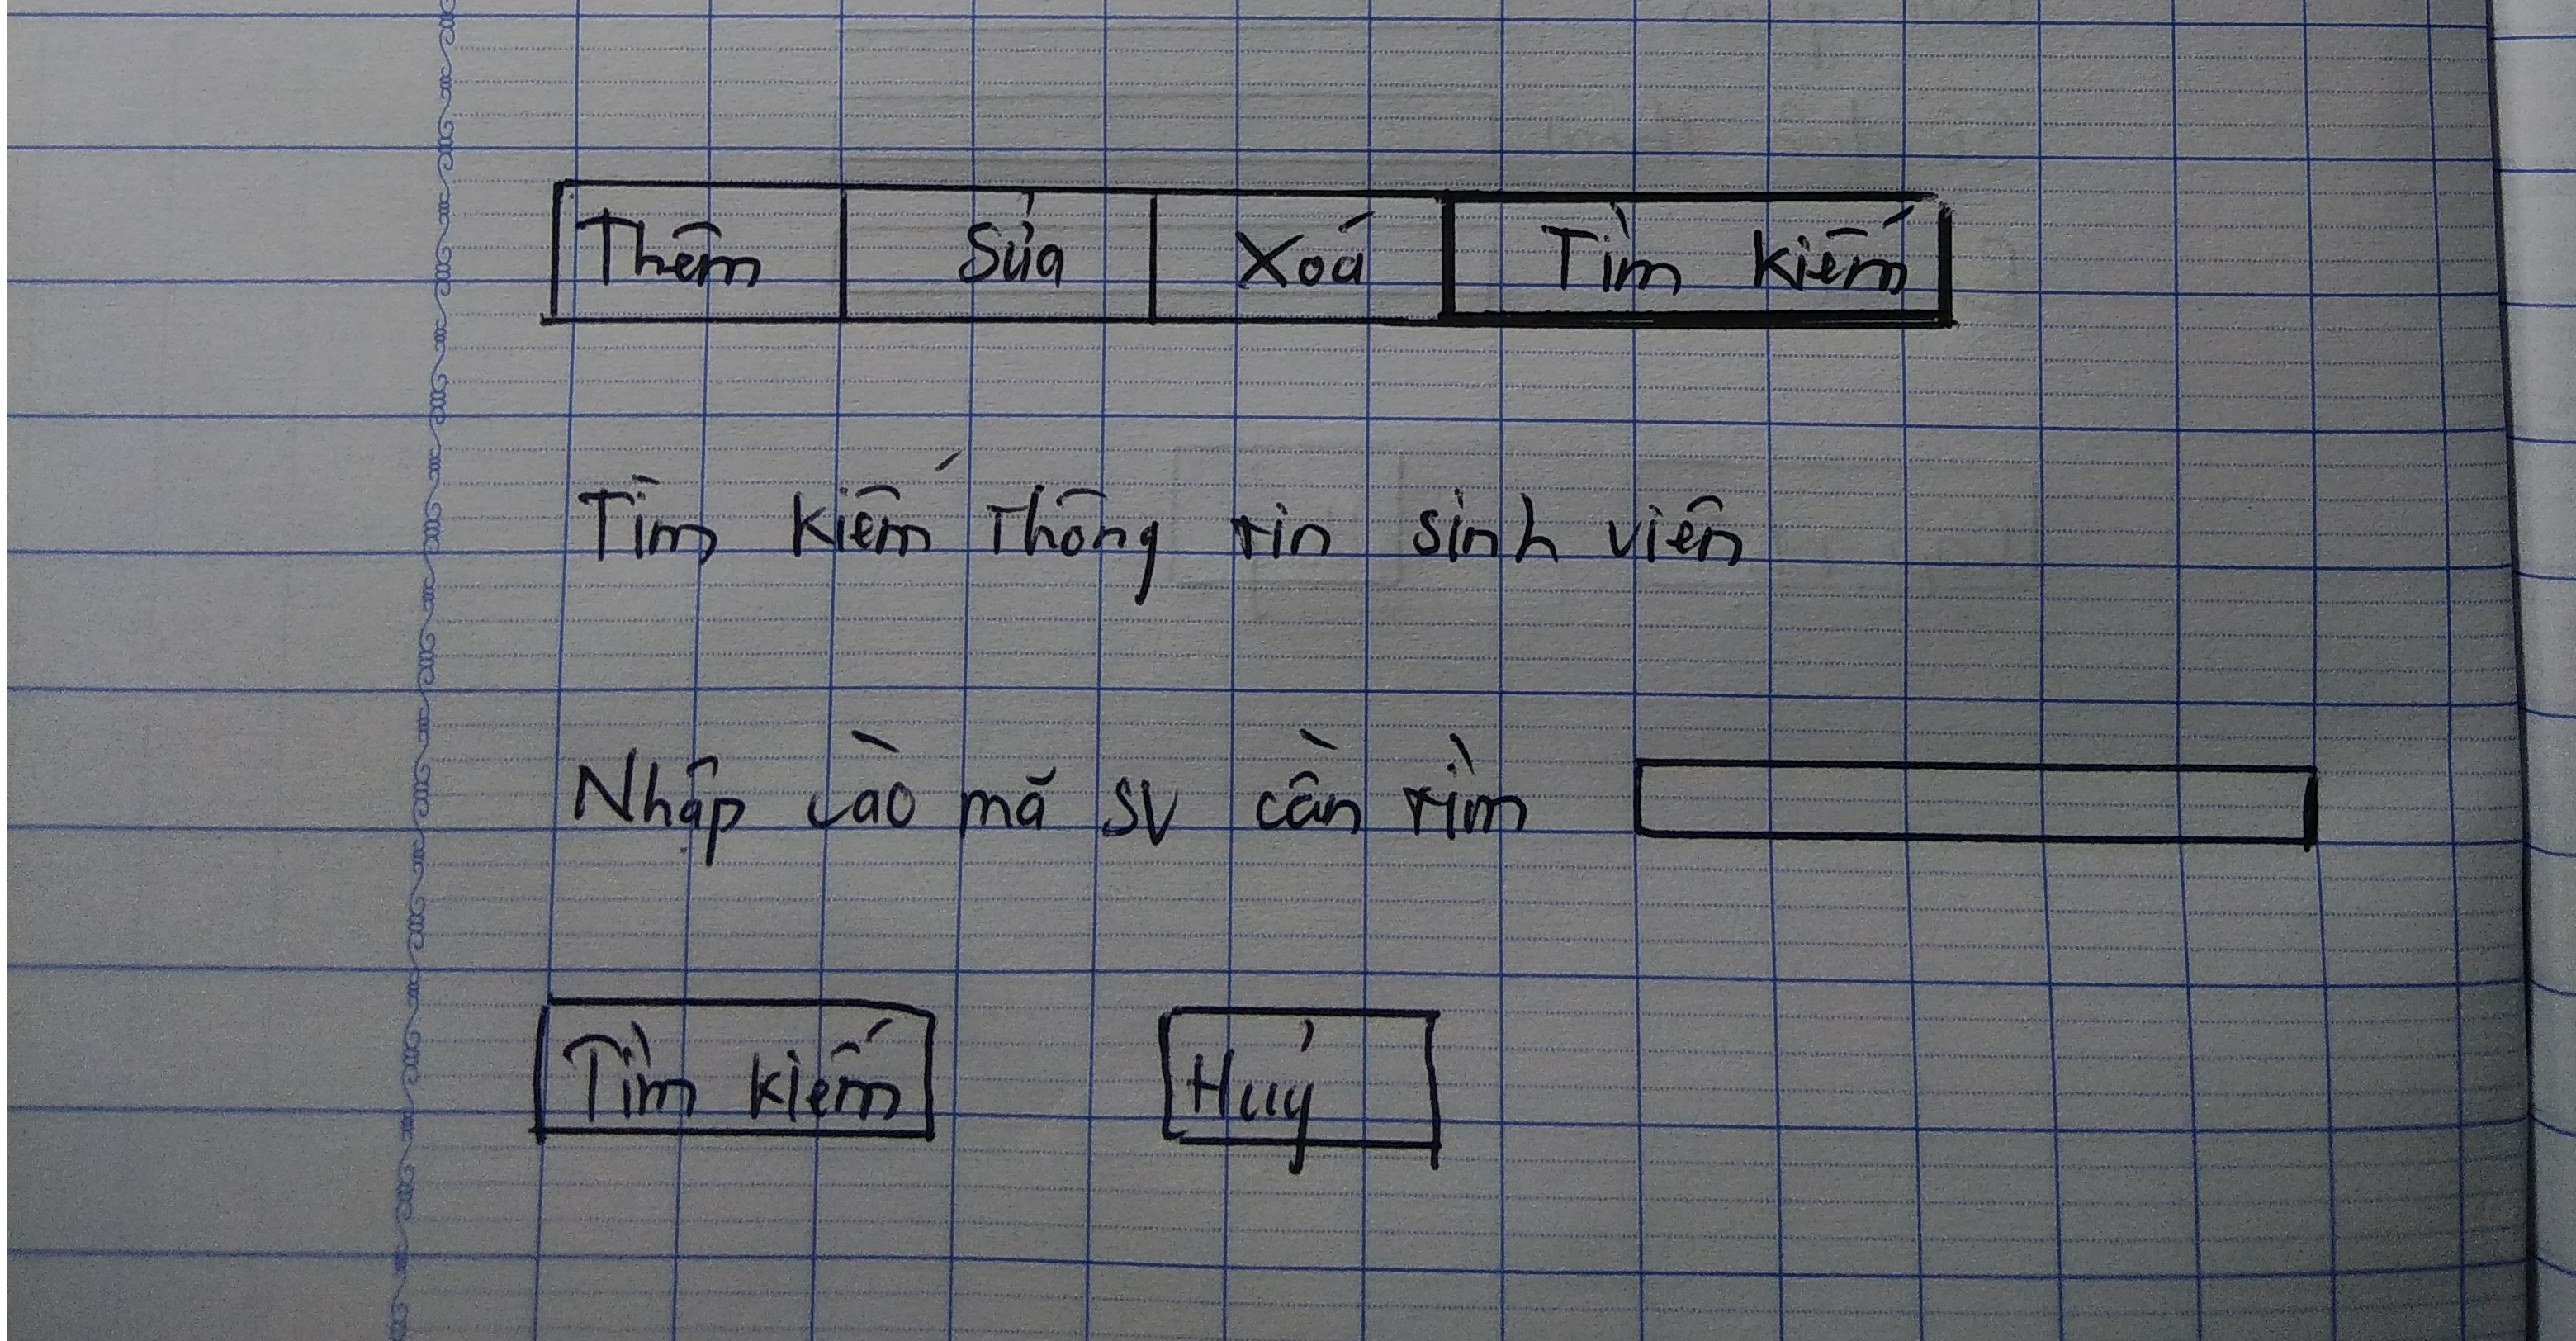 Thêm Sửa Xoá Tìm kiếm
Tìm kiếm Thông tin sinh viên
Nhập vào mã SV cần tìm
Tìm kiếm Huỷ